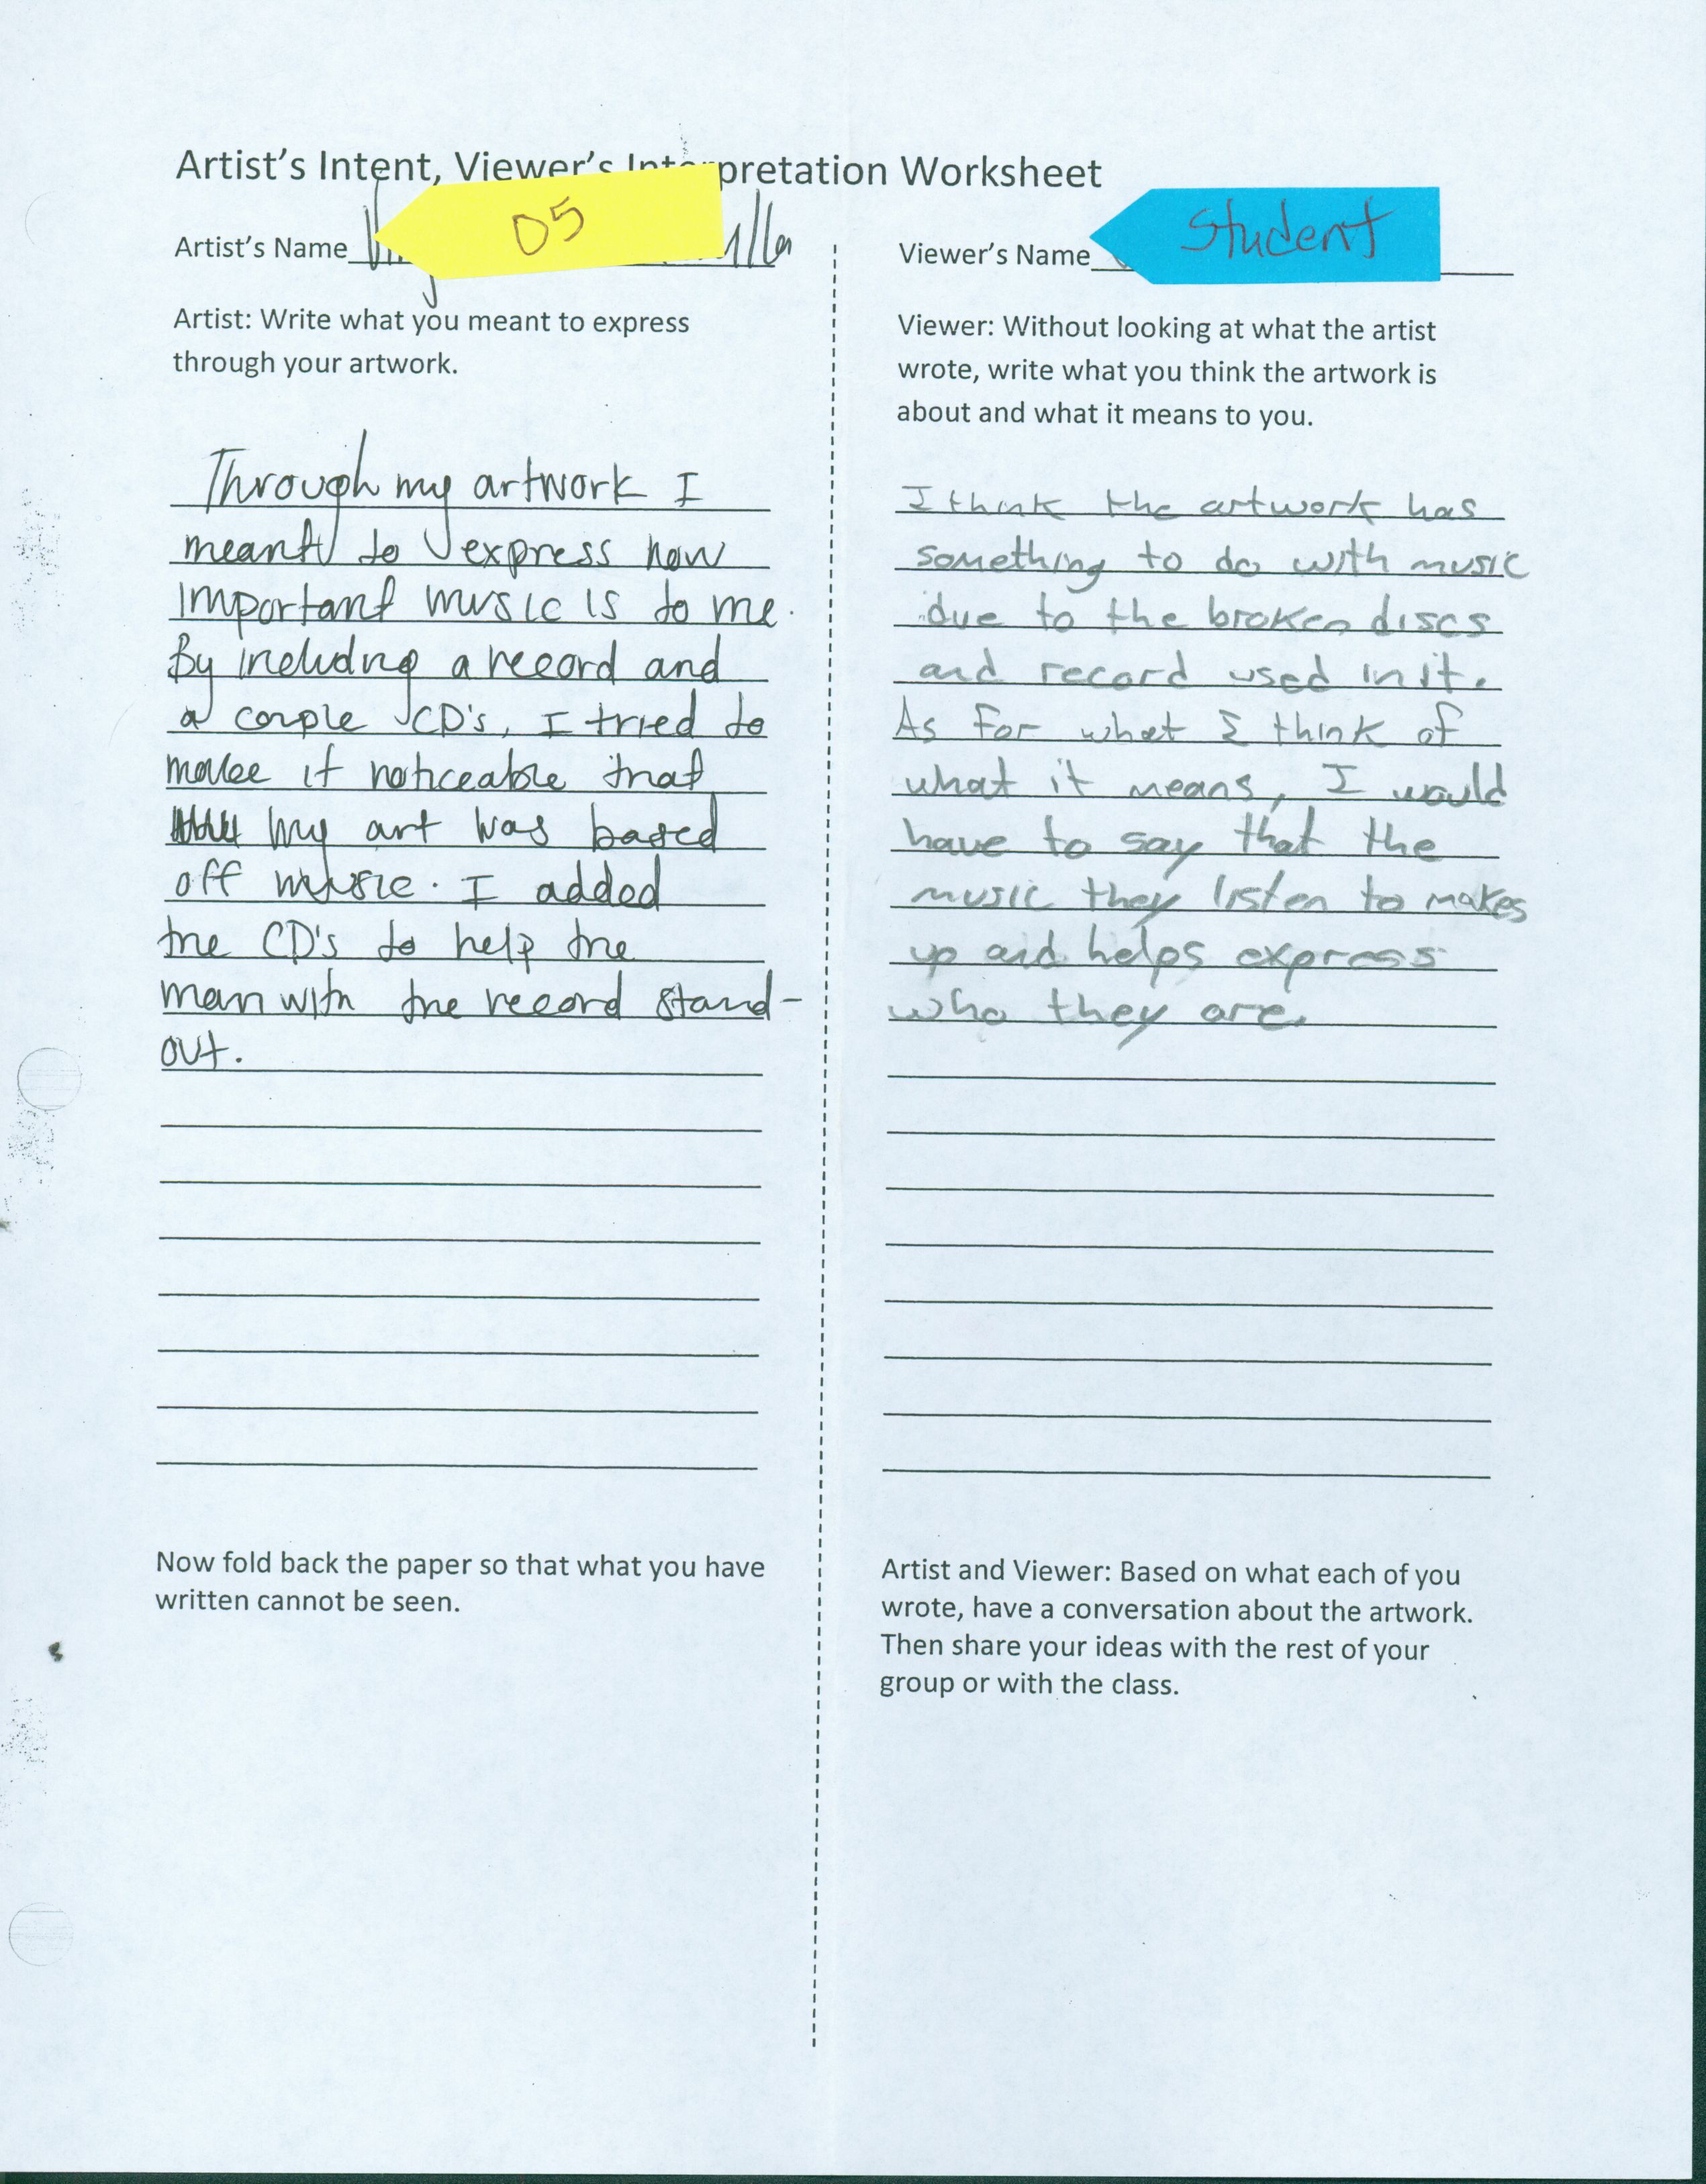 Artist's Intent, Viewer's Interpretation Worksheet
Artist's Name
05
Artist: Write what you meant to express
through your artwork.
Through my artwork I
meant to express how
important music is to me.
By including a record and
a couple CD's, I tried to
make it noticeable that
my art was based
off music. I added
the CD's to help the
man with the record stand-
out.
Now fold back the paper so that what you have
written cannot be seen.
Viewer's Name
Student
Viewer: Without looking at what the artist
wrote, write what you think the artwork is
about and what it means to you.
I think the artwork has
something to do with music
due to the broken discs
and record used in it.
As for what I think of
what it means, I would
have to say that the
music they listen to makes
up and helps express
who they are.
Artist and Viewer: Based on what each of you
wrote, have a conversation about the artwork.
Then share your ideas with the rest of your
group or with the class.